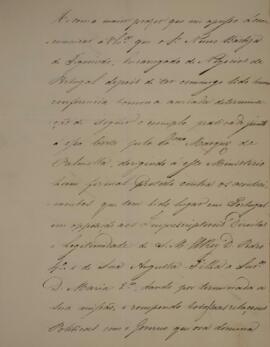 He com o maior prazer que me apresso à com-
municar a V. Ex.ª que o Sr. Nuno Barbosa
de Figueiredo, Encarregado de Negocios de
Portugal depois de ter commigo tido huma
conferencia tomou a acertada determina-
ção de seguir o exemplo praticado junto
a essa Corte pelo Ex.mo Marquez de
Palmella, dirigindo à este Ministerio
hum formal Protesto contra os aconteci-
mentos que tem tido lugar em Portugal
em opposição aos Imprescriptiveis Direitos
e Legitimidade de S. M. D. Pedro
4.º e de Sua Augusta Filha a Snr.ª
D. Maria 2.ª, dando por terminada a
sua missão, e rompendo todas as relações
Politicas com o Governo que ora domina